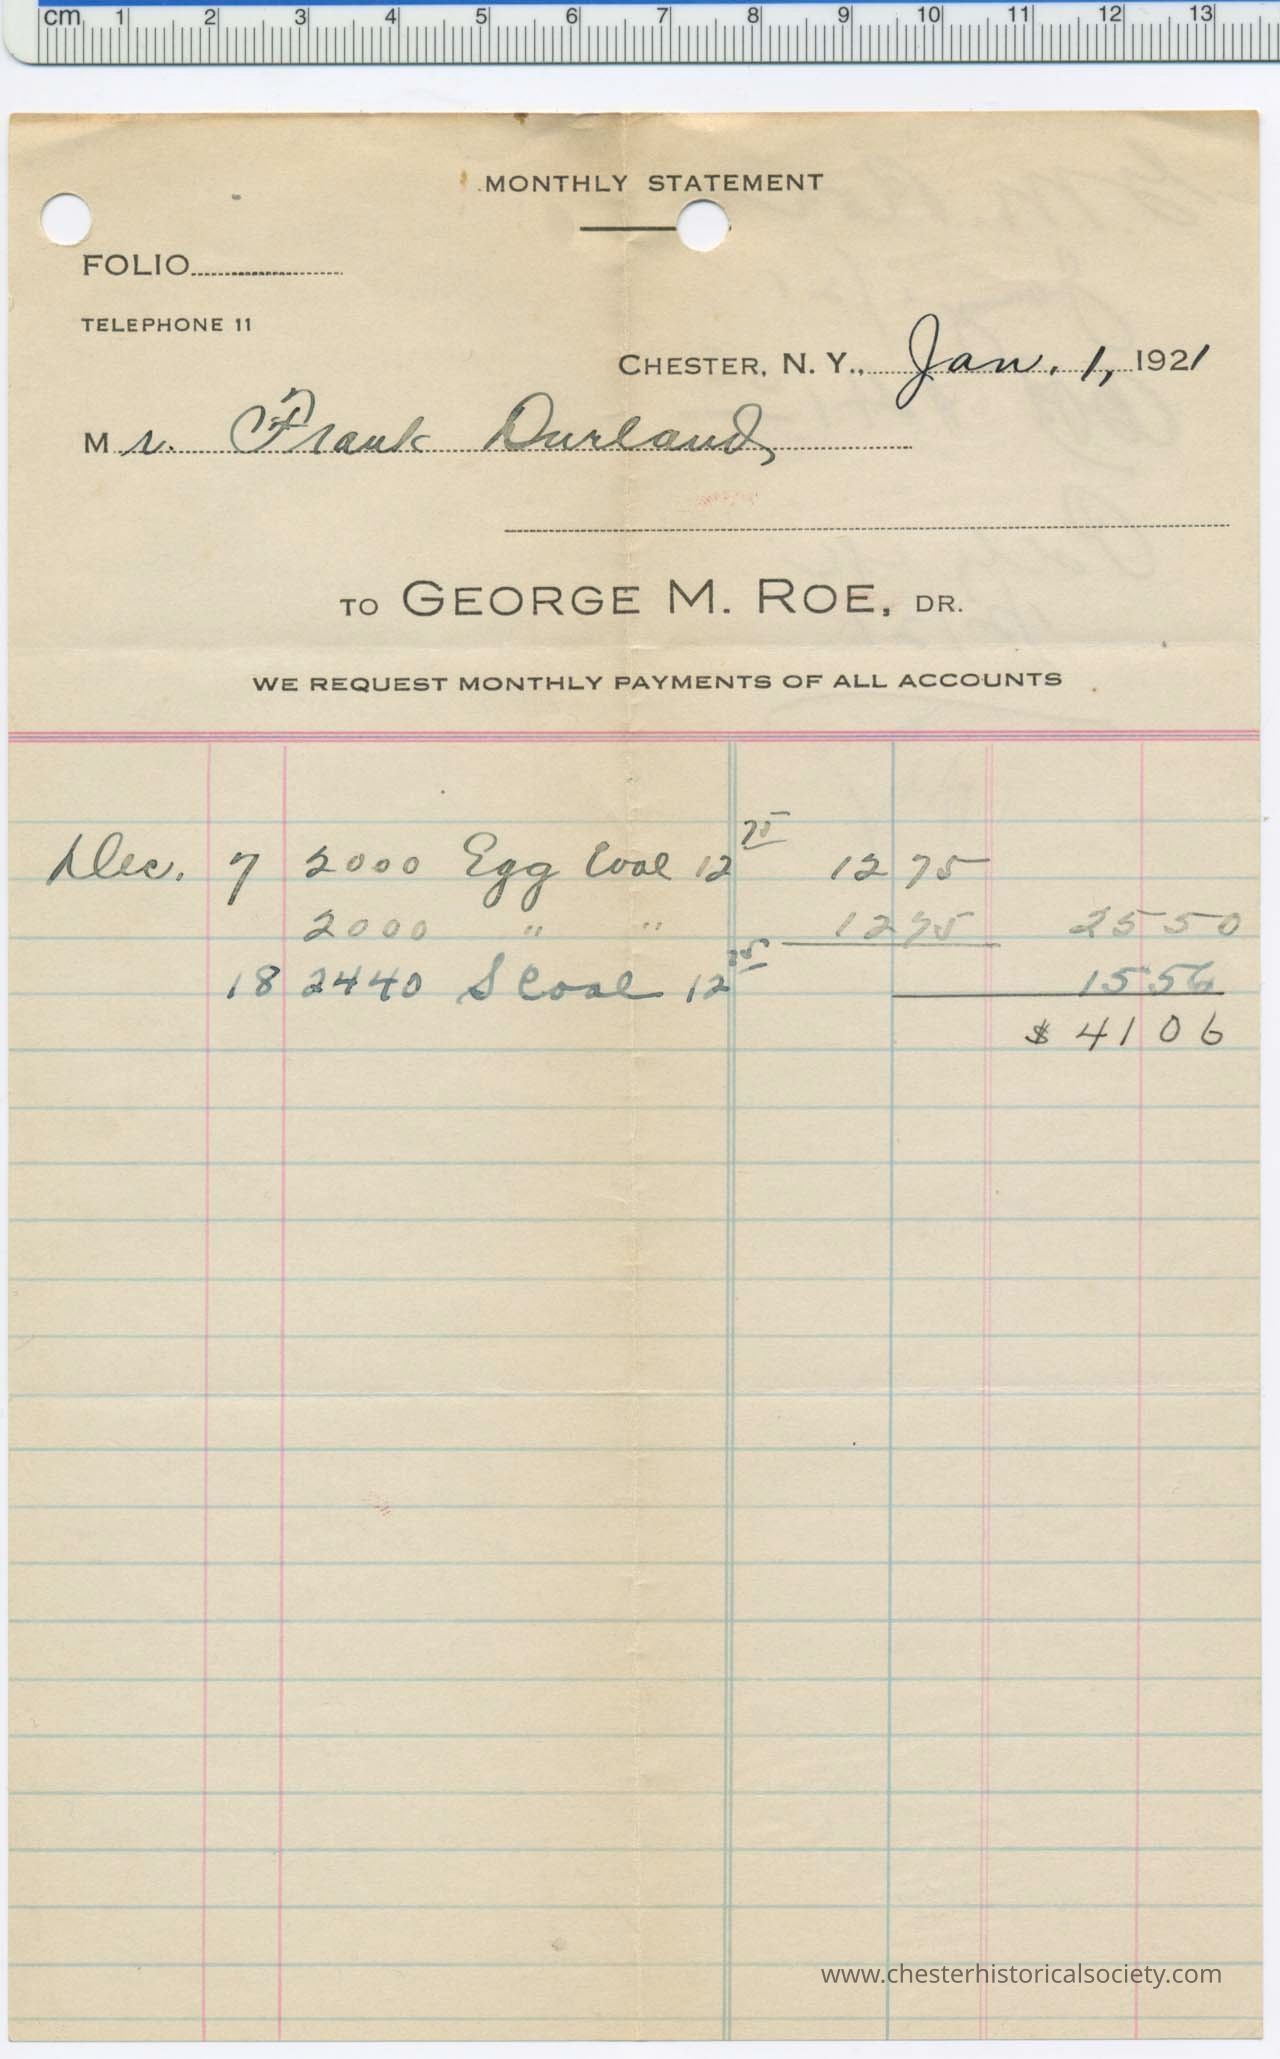 cm 1 2 3 4 5 6 7 8 9 10 11 12 13
MONTHLY STATEMENT
FOLIO
TELEPHONE 11
CHESTER, N. Y., Jan. 1, 1921
Mr. Frank Durland,
TO GEORGE M. ROE, DR.
WE REQUEST MONTHLY PAYMENTS OF ALL ACCOUNTS
Dec. 7 2000 Egg Coal 12 75 12 75
2000 " " 12 75 25 50
18 2440 S Coal 12 75 15 56
$ 41 06
www.chesterhistoricalsociety.com